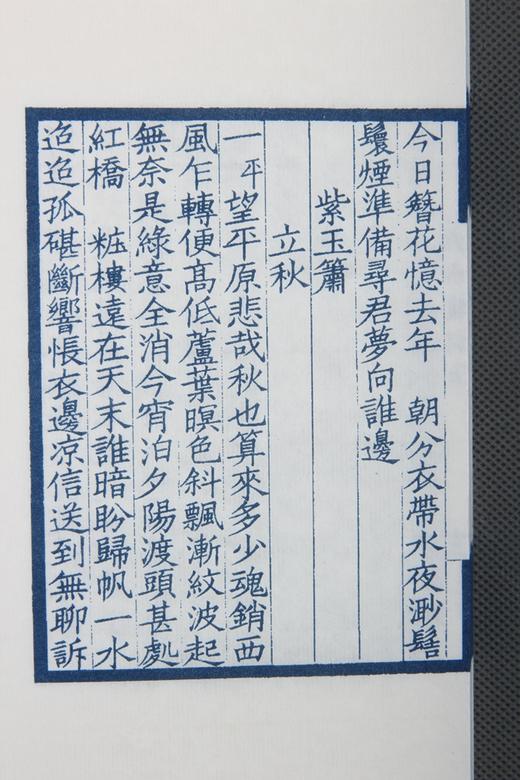 今日簪花憶去年　朝分衣帶水夜渺髻
鬟煙準備尋君夢向誰邊
紫玉簫
立秋
一平望平原悲哉秋也算來多少魂銷西
風乍轉便髙低蘆葉暝色斜飄漸紋波起
無奈是綠意全消今宵泊夕陽渡頭甚處
紅橋　粧樓遠在天末誰暗盼歸帆一水
迢迢孤碪斷響悵衣邊凉信送到無聊訴